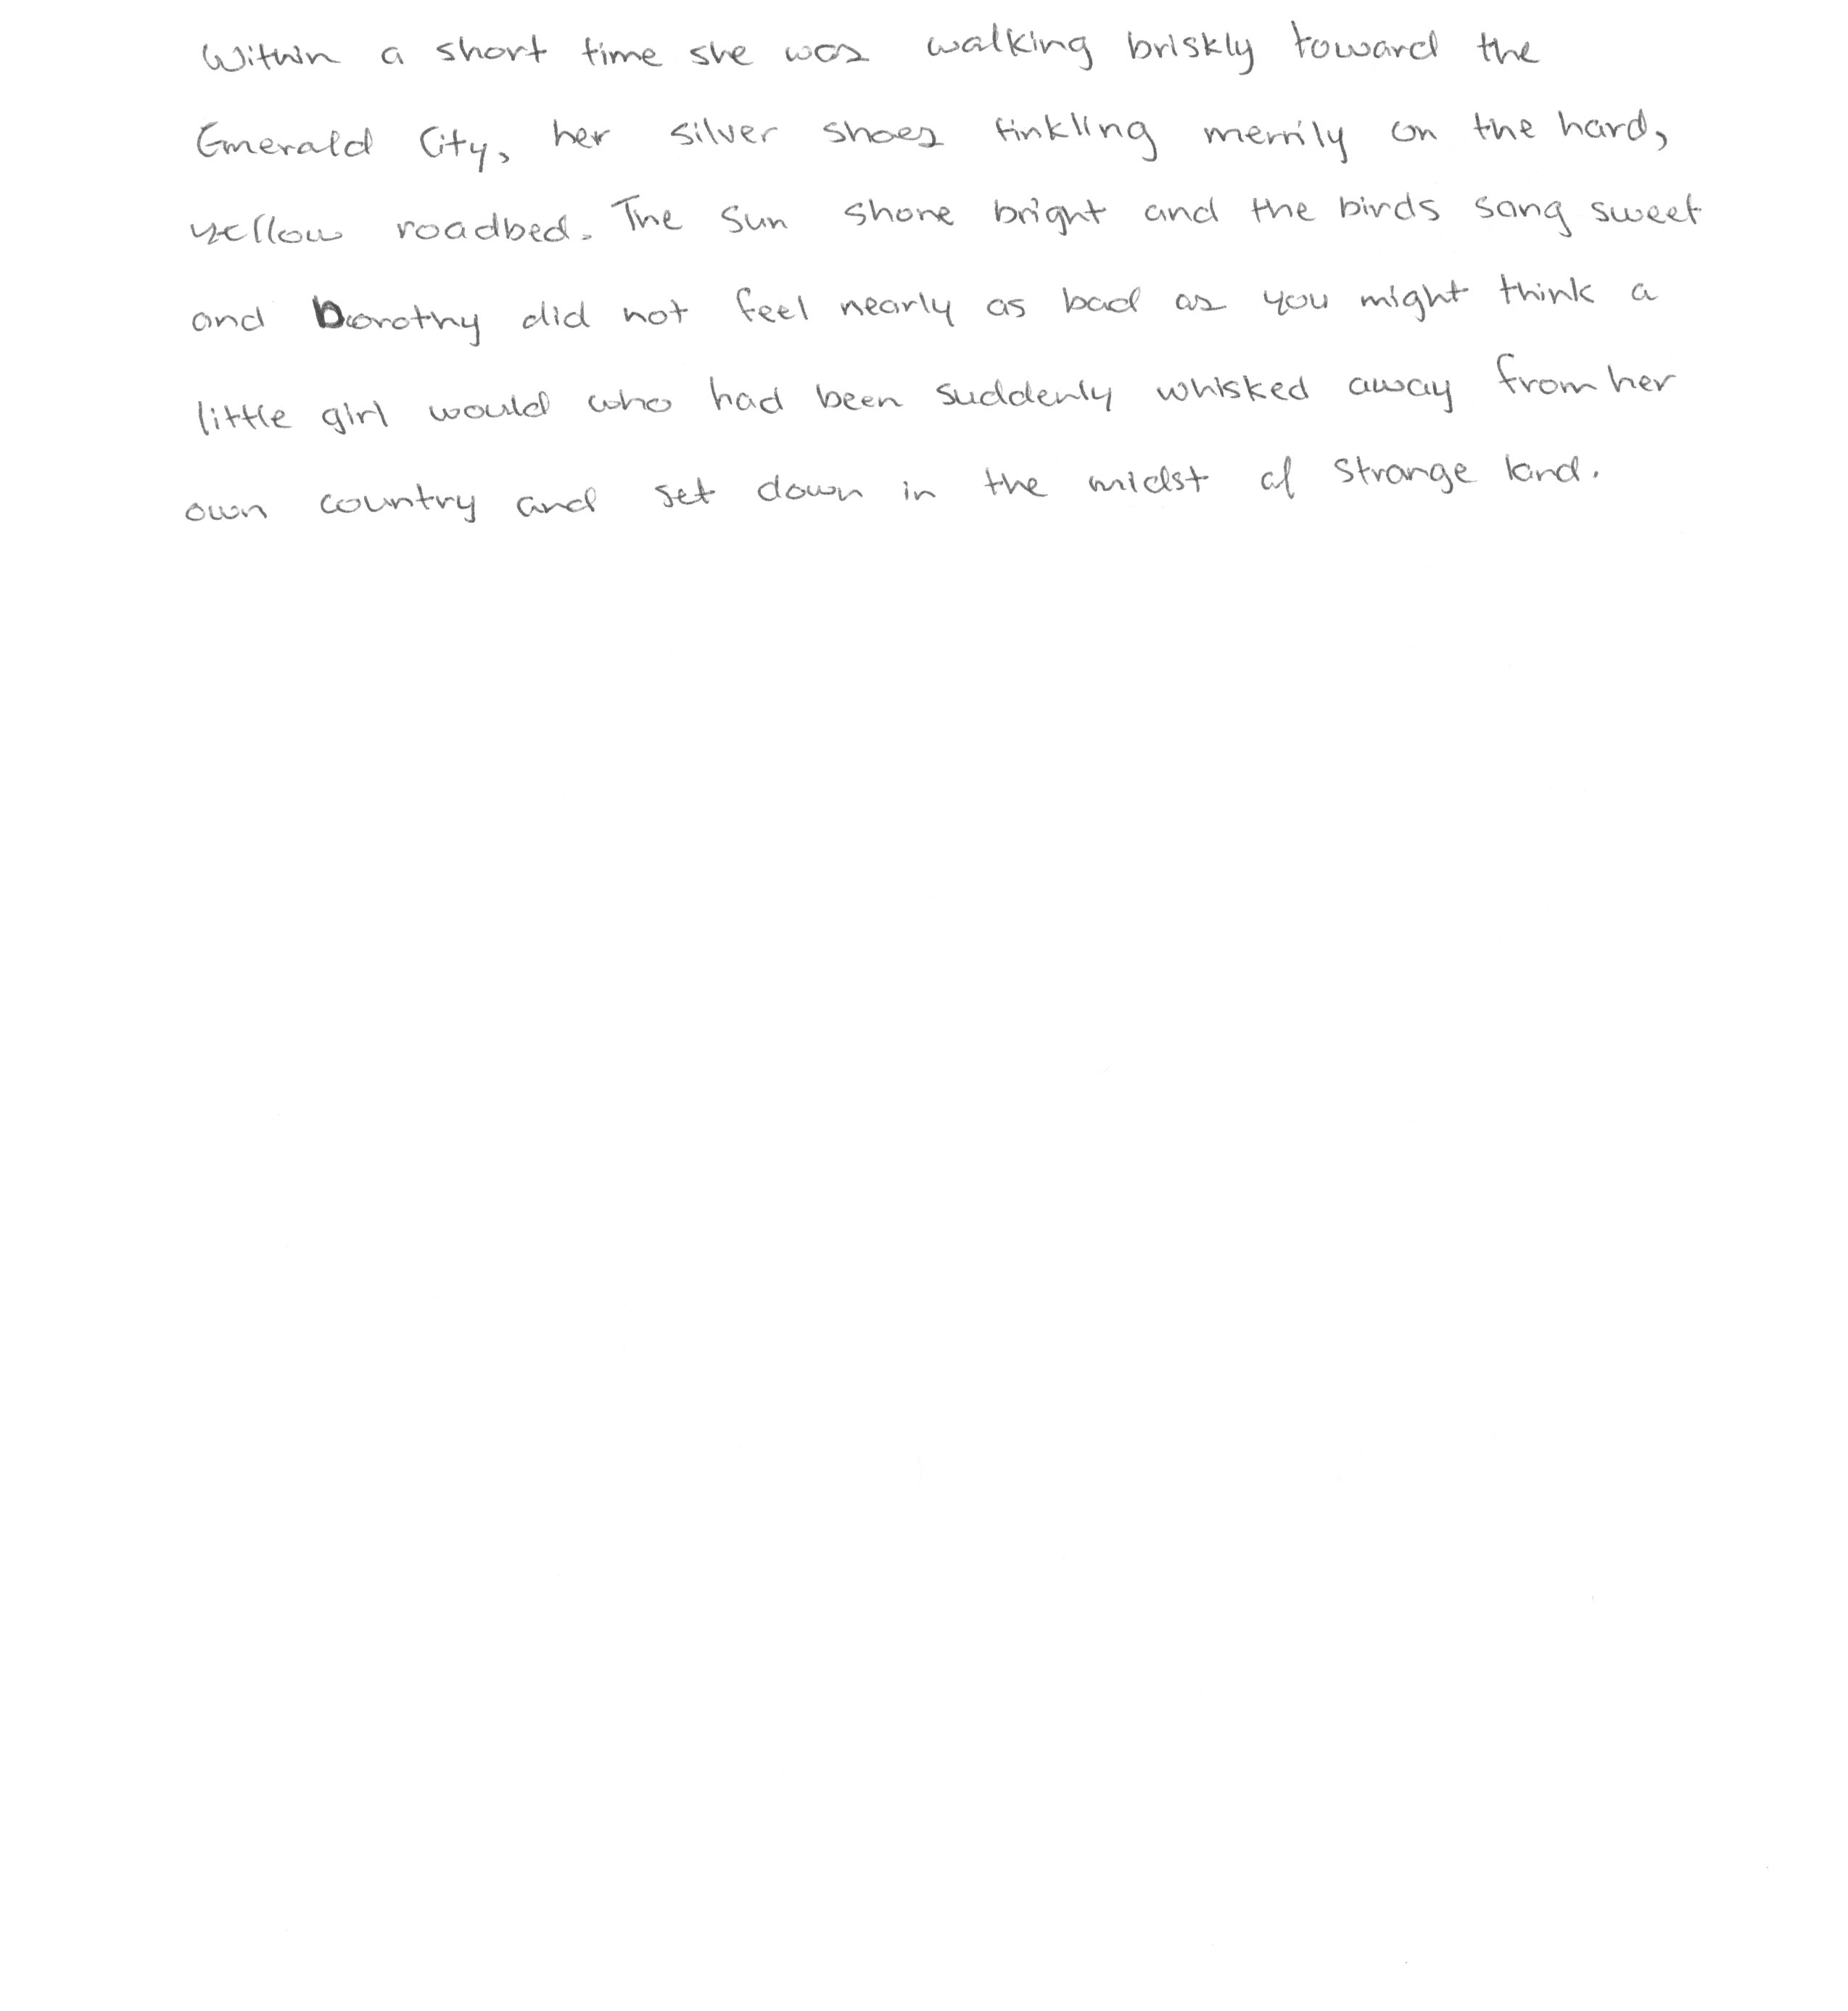 Within a short time she was walking briskly toward the
Emerald City, her silver shoes tinkling merrily on the hard,
yellow roadbed. The sun shone bright and the birds sang sweet
and Dorothy did not feel nearly as bad as you might think a
little girl would who had been suddenly whisked away from her
own country and set down in the midst of strange land.